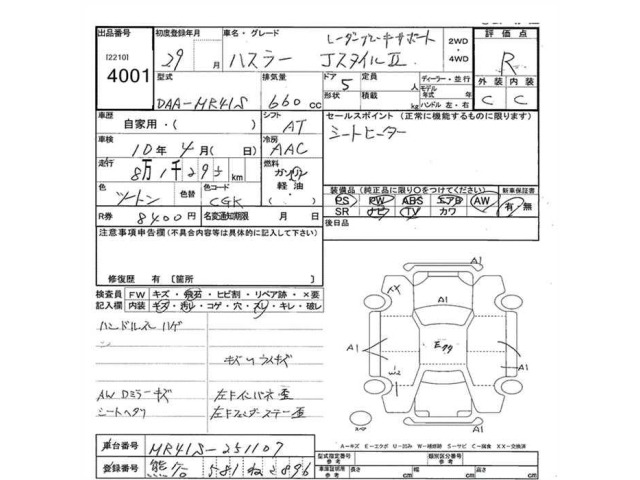 出品番号 初度登録年月 車名・グレード レーダーブレーキサポート 評価点
[22101]
4001
29 月 ハスラー JスタイルⅡ 2WD ・ 4WD R
型式 排気量 ドア 定員 ディーラー・並行 外装 内装
DAA-MR41S 660 cc 5 人 モデル年式 年
形状 積載 kg ハンドル 左・右 C C
車歴 自家用・( ) シフト AT セールスポイント (正常に機能するものに限ります)
車検 10年4月( 日) 冷房 AAC シートヒーター
走行 8万1千295 km 燃料 ガソリン
軽油・
( )
色 ツートン 色替 色コード CGK
装備品 (純正品に限り○をつけてください) 新車保証書
PS PW ABS エアB AW 有・無
SR ナビ TV カワ
R券 8400円 名変通知期限 月 日 後日品
注意事項申告欄 (不具合内容等は具体的に記入して下さい)
修復歴 有 〔箇所 〕
検査員記入欄 FW キズ・飛石・ヒビ割・リペア跡・×要
内装 キズ・汚レ・コゲ・穴・スレ・キレ・破レ
ハンドルスレ ハゲ
キズ ライキズ
AW Dミラーキズ 左Fインパネ歪
シートヘタリ 左Fフェンダーステー歪
A1
XX
A1
A1
A1
A1
スペア
A-キズ E-エクボ U-凹み W-補修跡 S-サビ C-腐食 XX-交換済
車台番号 MR41S-251107
登録番号 熊谷 581 ね 2896
型式指定番号 参考 類別区分番号 参考
車庫証明用 参考 長さ cm 幅 cm 高さ cm